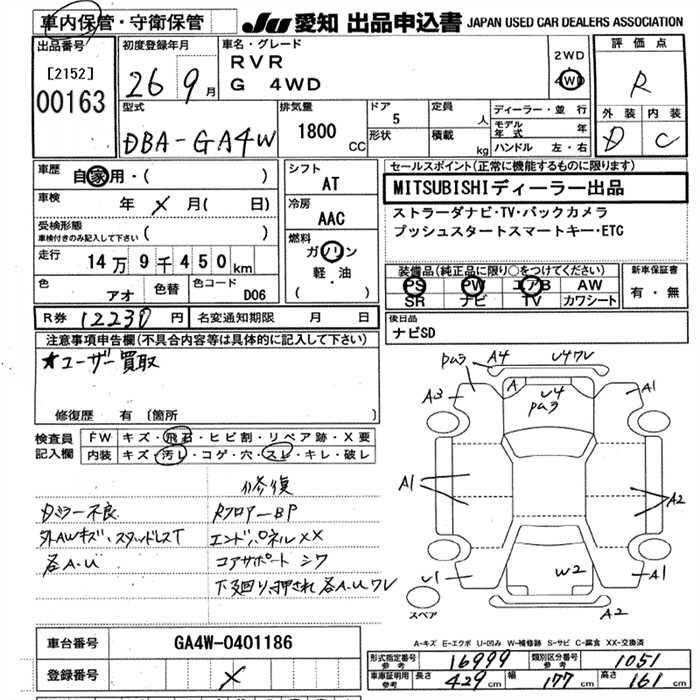 車内保管・守衛保管
JU 愛知 出品申込書 JAPAN USED CAR DEALERS ASSOCIATION
出品番号
[2152]
00163
初度登録年月
26 9月
車名・グレード
RVR
G 4WD
2WD
4WD
評価点
R
外装 内装
D C
型式
DBA-GA4W
排気量
1800 CC
ドア 5
形状
定員 人
積載 kg
ディーラー・並行
モデル年式 年
ハンドル 左・右
車歴 自家用・( )
車検 年 × 月( 日)
受検形態
車検付きのみ記入して下さい ( )
走行 14万9千450km
色 アオ
色替
色コード D06
シフト
AT
冷房
AAC
燃料
ガソリン
軽・油
( )
セールスポイント(正常に機能するものに限ります)
MITSUBISHIディーラー出品
ストラーダナビ・TV・バックカメラ
プッシュスタートスマートキー・ETC
装備品(純正品に限り○をつけてください)
PS PW エアB AW
SR ナビ TV カワシート
新車保証書
有・無
R券 12230円 名変通知期限 月 日
後日品
ナビSD
注意事項申告欄(不具合内容等は具体的に記入して下さい)
★ユーザー買取
修復歴 有 (箇所
検査員記入欄
FW キズ・飛石・ヒビ割・リペア跡・X要
内装 キズ・汚レ・コゲ・穴・スレ・キレ・破レ
修復
Dミラー不良 Rフロアー BP
外AWキズ・スタッドレスT エンドパネル XX
各A.U コアサポート シワ
下廻り、押され 各A.Uワレ
pa3 A4 U4ワレ
A3 A U4 pa3 A1
A1 A2
U1 W2 A1
スペア A2
A-キズ E-エクボ U-凹み W-補修跡 S-サビ C-腐食 XX-交換済
車台番号 GA4W-0401186
登録番号 ×
形式指定番号 参考 16999 類別区分番号 参考 1051
車庫証明用 参考 長さ 429cm 幅 177cm 高さ 161cm